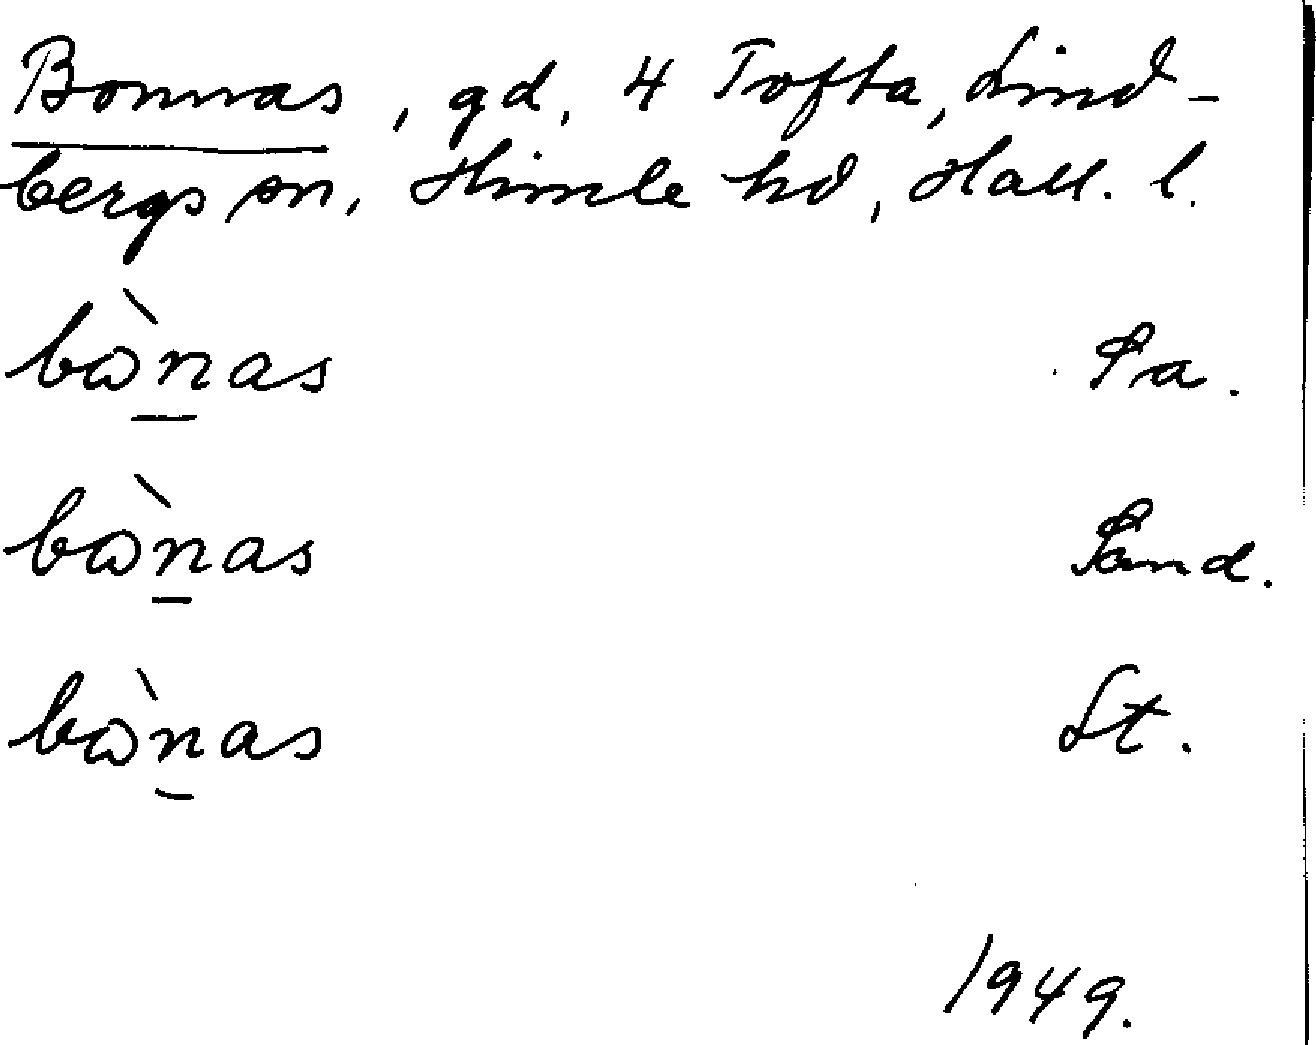 Bonnas, gd, 4 Tofta, Lind-
bergs sn, Himle hd, Hall. l.
bὼn̲as Pa.
bὼn̲as Sand.
bὼn̲as St.
1949.